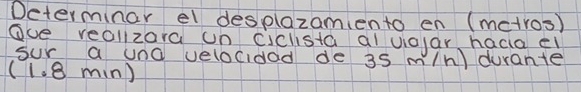 Determinar el desplazamiento en (metros)
Que realizara un ciclista al viajar hacia el
sur a una velocidad de 35 m/h) durante
(1.8 min)